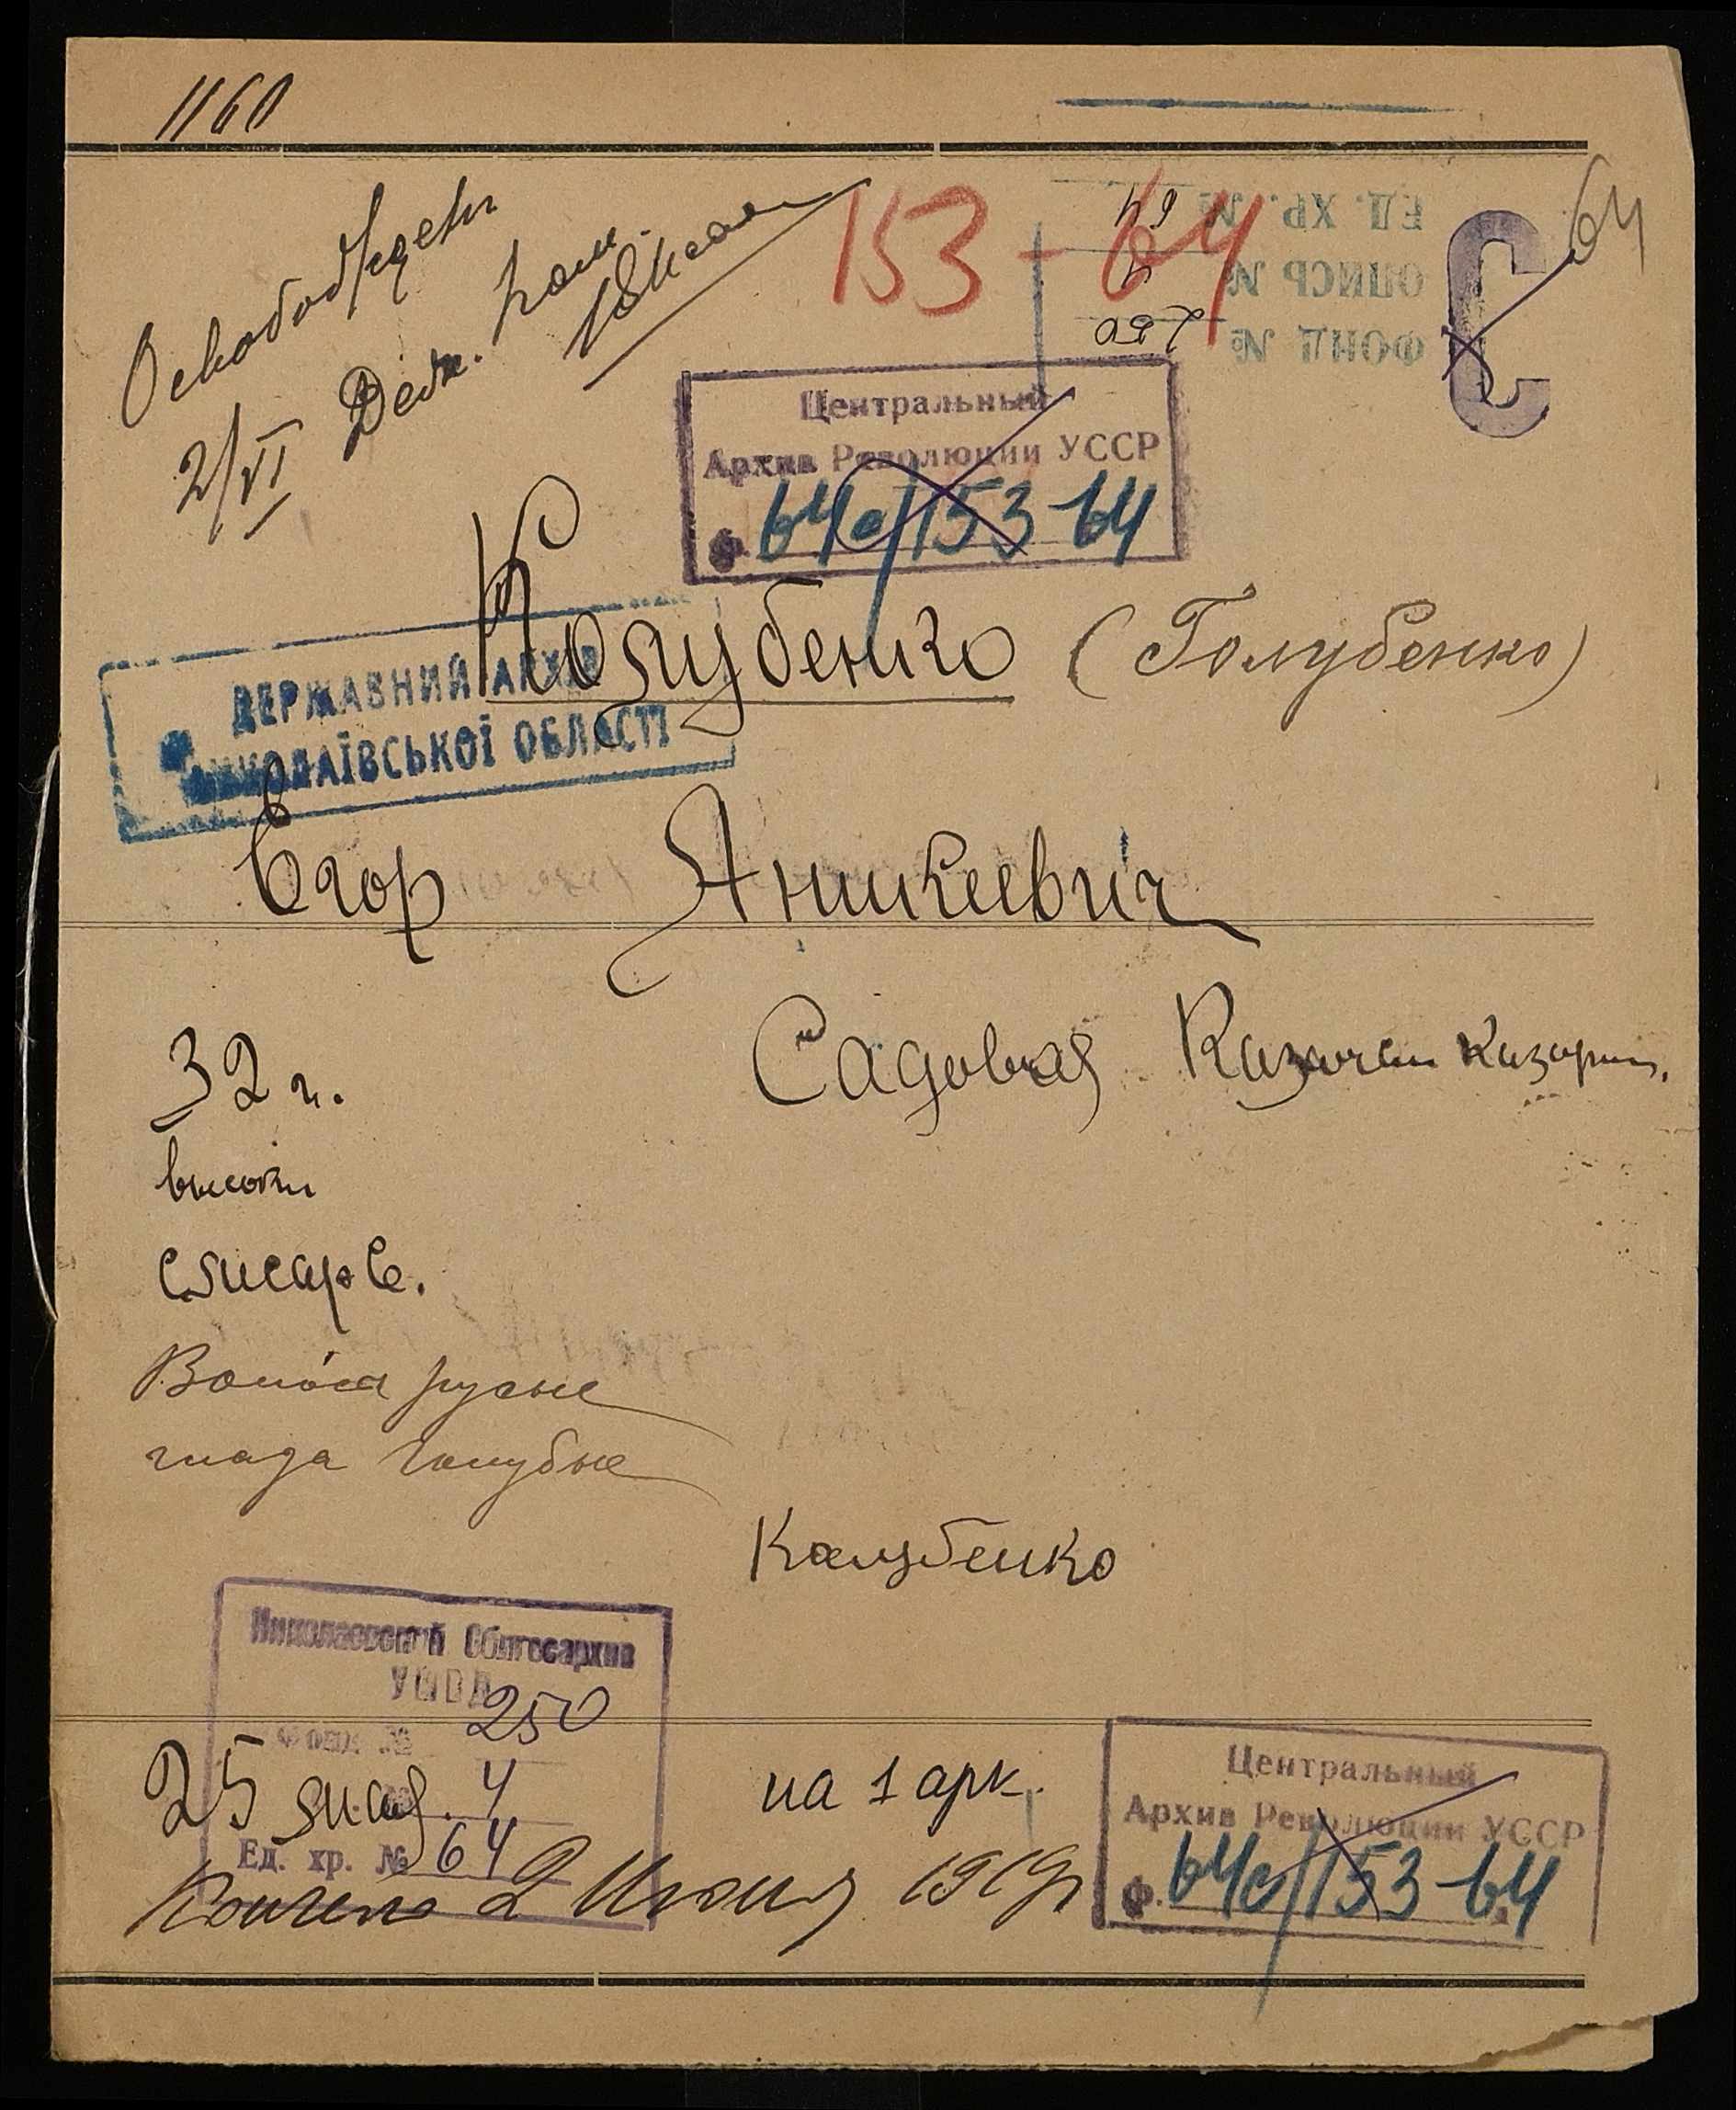 1160
Освобожден
2/VI Деж. ком.
153-64
64
ЕД. ХР. № 64
ОПИСЬ № 4
ФОНД № 250
С
Центральный
Архив Революции УССР
Ф. 64с/153-64
Колубенко (Голубенко)
ДЕРЖАВНИЙ АРХІВ
МИКОЛАЇВСЬКОЇ ОБЛАСТІ
Егор Яникеевич
32 г. Садовая
высокий
слесарь.
Волоса русые
глаза голубые
Колубенко
Николаевский Облгосархив
Фонд № 250
4
Ед. хр. № 64
25 мая на 1 арк.
Кончено 2 Июня 1919 г
Центральный
Архив Революции УССР
Ф. 64с/153-64